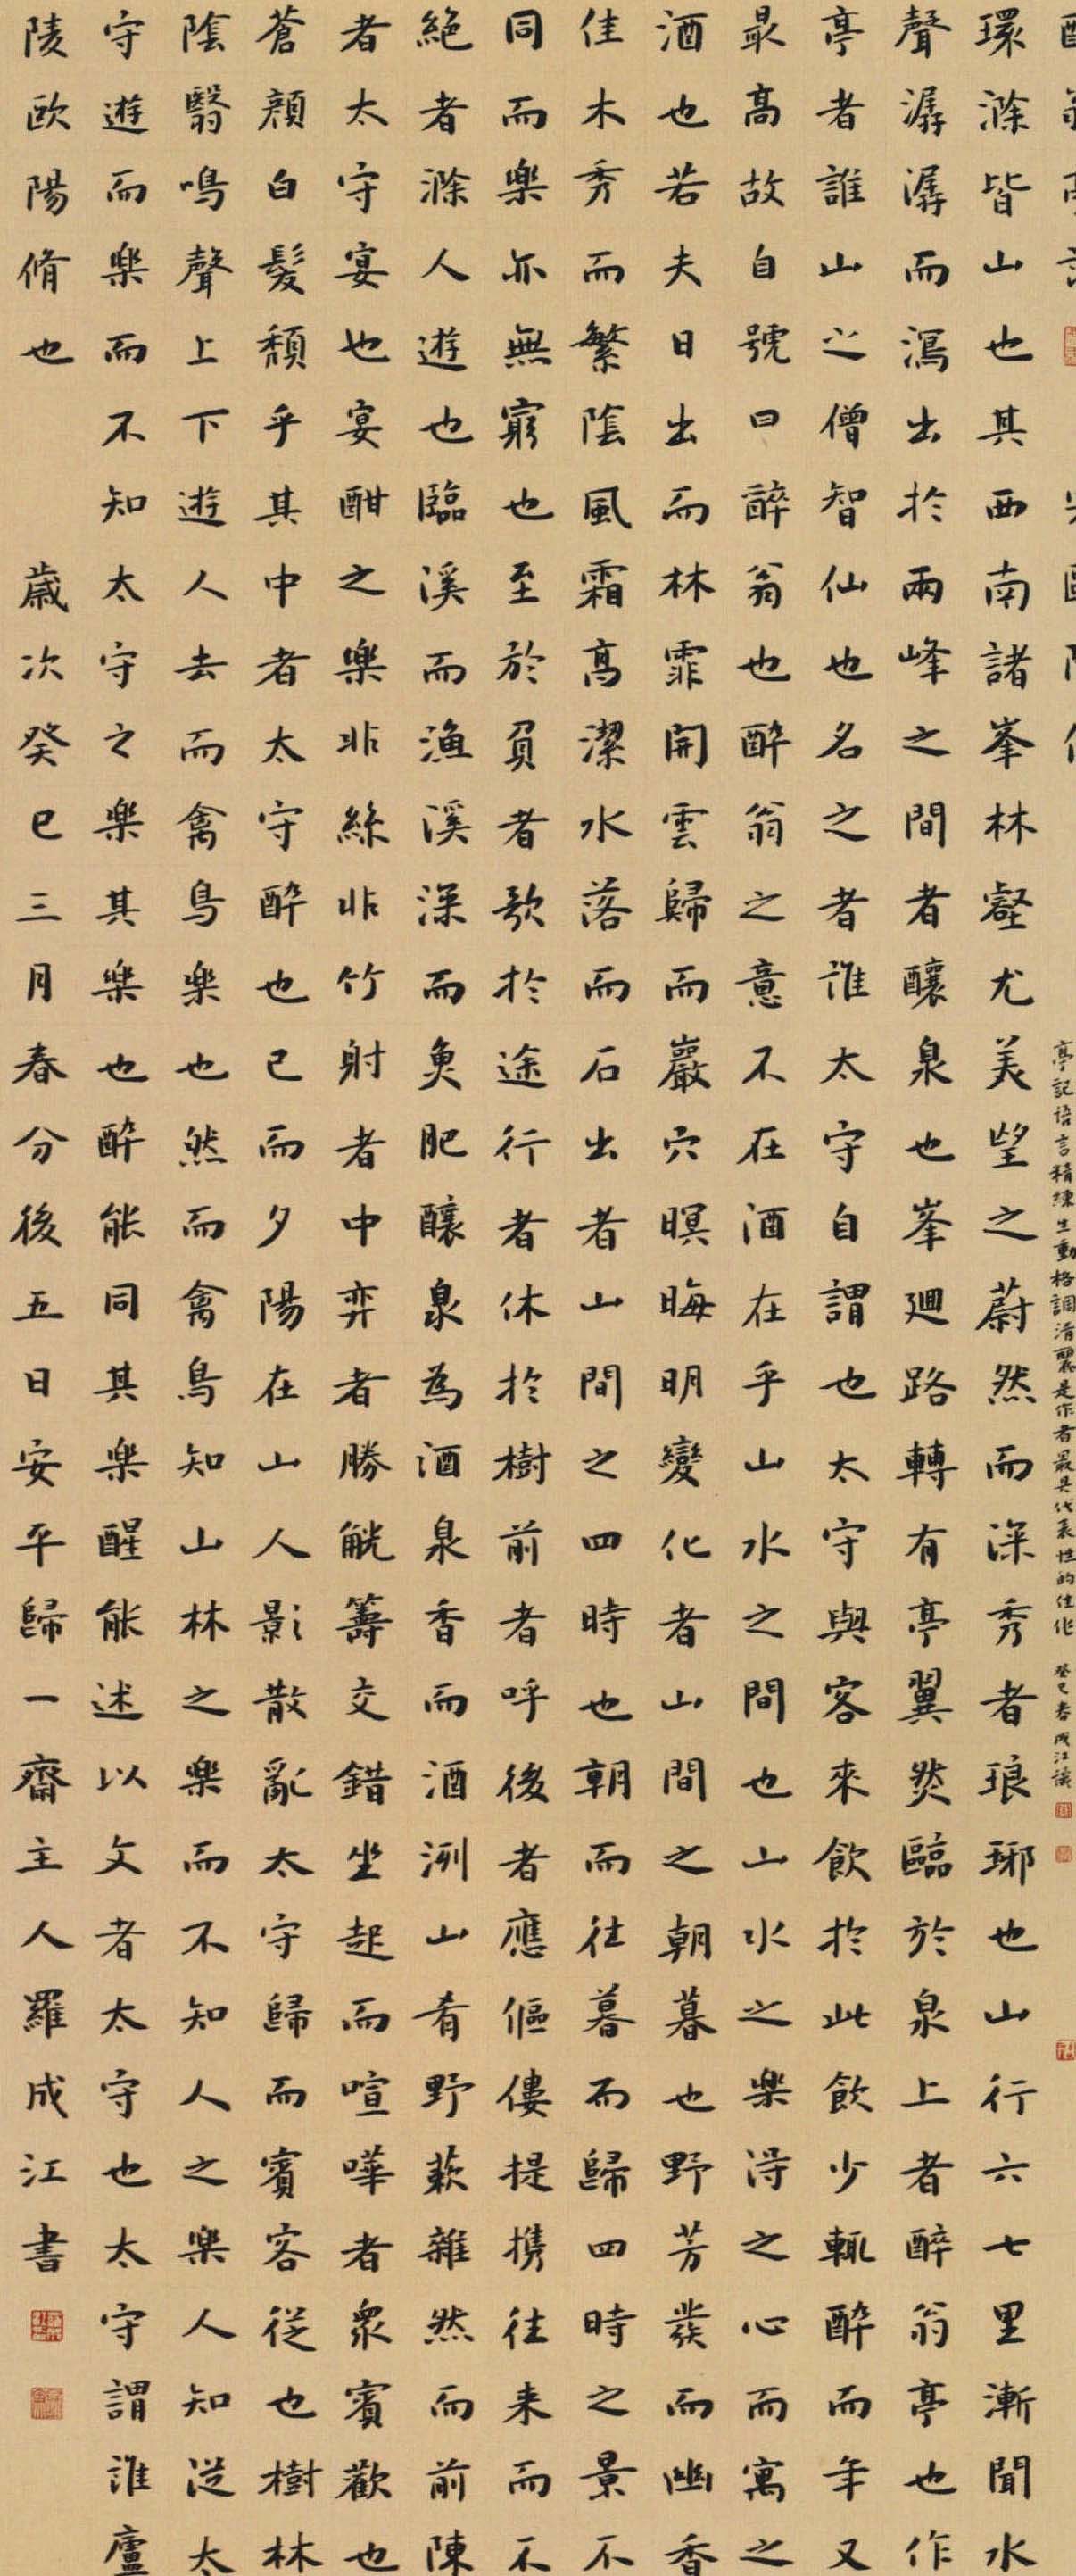 亭記語言精練生動格調清麗是作者最具代表性的佳作 癸巳春成江識
環滁皆山也其西南諸峯林壑尤美望之蔚然而深秀者琅琊也山行六七里漸聞水
聲潺潺而瀉出於兩峰之間者釀泉也峯廻路轉有亭翼然臨於泉上者醉翁亭也作
亭者誰山之僧智仙也名之者誰太守自謂也太守與客來飲於此飲少輒醉而年又
最高故自號曰醉翁也醉翁之意不在酒在乎山水之間也山水之樂得之心而寓之
酒也若夫日出而林霏開雲歸而巖穴暝晦明變化者山間之朝暮也野芳發而幽香
佳木秀而繁陰風霜高潔水落而石出者山間之四時也朝而往暮而歸四時之景不
同而樂亦無窮也至於負者歌於途行者休於樹前者呼後者應傴僂提携往来而不
絕者滁人遊也臨溪而漁溪深而魚肥釀泉為酒泉香而酒洌山肴野蔌雜然而前陳
者太守宴也宴酣之樂非絲非竹射者中弈者勝觥籌交錯坐起而喧嘩者衆賓歡也
蒼顏白髮頹乎其中者太守醉也已而夕陽在山人影散亂太守歸而賓客從也樹林
陰翳鳴聲上下遊人去而禽鳥樂也然而禽鳥知山林之樂而不知人之樂人知從太
守遊而樂而不知太守之樂其樂也醉能同其樂醒能述以文者太守也太守謂誰廬
陵歐陽脩也 歲次癸巳三月春分後五日安平歸一齋主人羅成江書